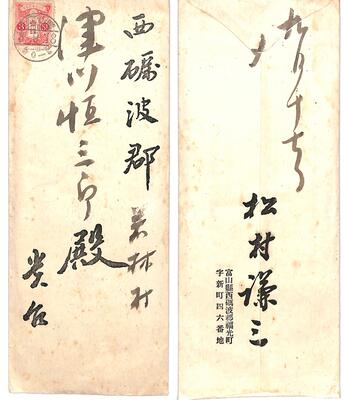 西礪波郡
若林村
津川恒三郎殿
貴台
九月十七日
松村謙三
富山縣西礪波郡福光町
字新町四六番地